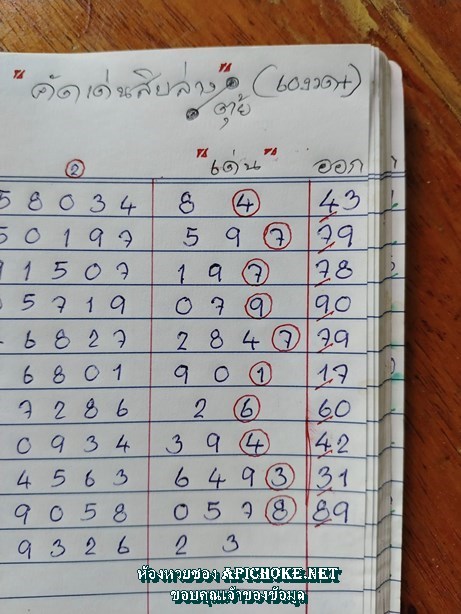 คัดเด่นสิบล่าง (เองวดา)
ตุ้ย
② "เด่น" ออก
5 8 0 3 4 8 ④ 43
5 0 1 9 7 5 9 ⑦ 79
9 1 5 0 7 1 9 ⑦ 78
0 5 7 1 9 0 7 ⑨ 90
6 8 2 7 2 8 4 ⑦ 79
6 8 0 1 9 0 ① 17
7 2 8 6 2 ⑥ 60
0 9 3 4 3 9 ④ 42
4 5 6 3 6 4 9 ③ 31
9 0 5 8 0 5 7 ⑧ 89
9 3 2 6 2 3
ห้องหวยซอง APICHOKE.NET
ขอบคุณเจ้าของข้อมูล